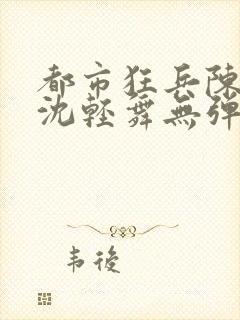 都市狂兵陳
沈輕舞無彈
韦後